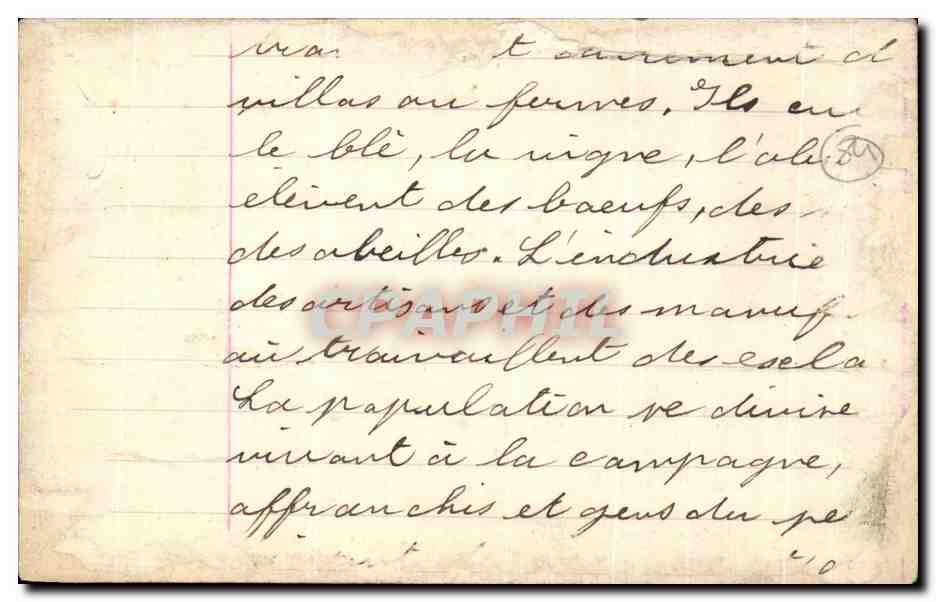 villas ou fermes. Ils cu
le blé, la vigne, l'oli
élèvent des boeufs, des
des abeilles. L'industrie
des artisans et des manuf
où travaillent des escla
La population se divise
vivant à la campagne,
affranchis et gens du pe
CPAPHIL